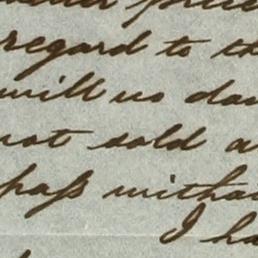 regard to th
will us da
not sold a
paſs witha
I ha